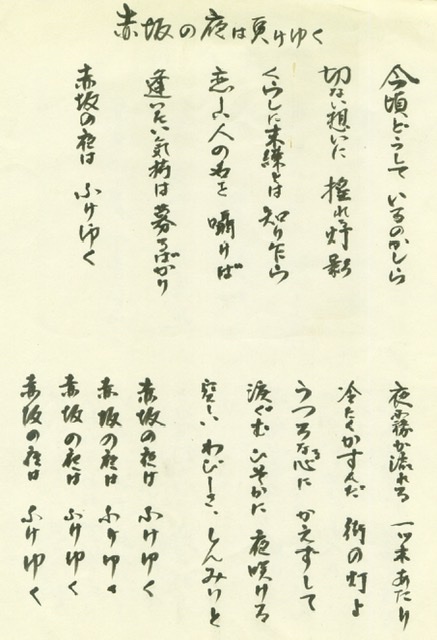 赤坂の夜は更けゆく
今頃どうして いるのかしら
切ない想いに 揺れる灯影
未練とは 知り乍ら
恋しい人の名を 囁けば
逢いたい気持は 募るばかり
赤坂の夜は ふけゆく
夜霧が流れる 一ツ木あたり
冷たくかすんだ 街の灯よ
うつろな心に
涙ぐむ ひそかに 夜咲ける
わびしさ、しんみりと
赤坂の夜は ふけゆく
赤坂の夜は ふけゆく
赤坂の夜は ふけゆく
赤坂の夜は ふけゆく